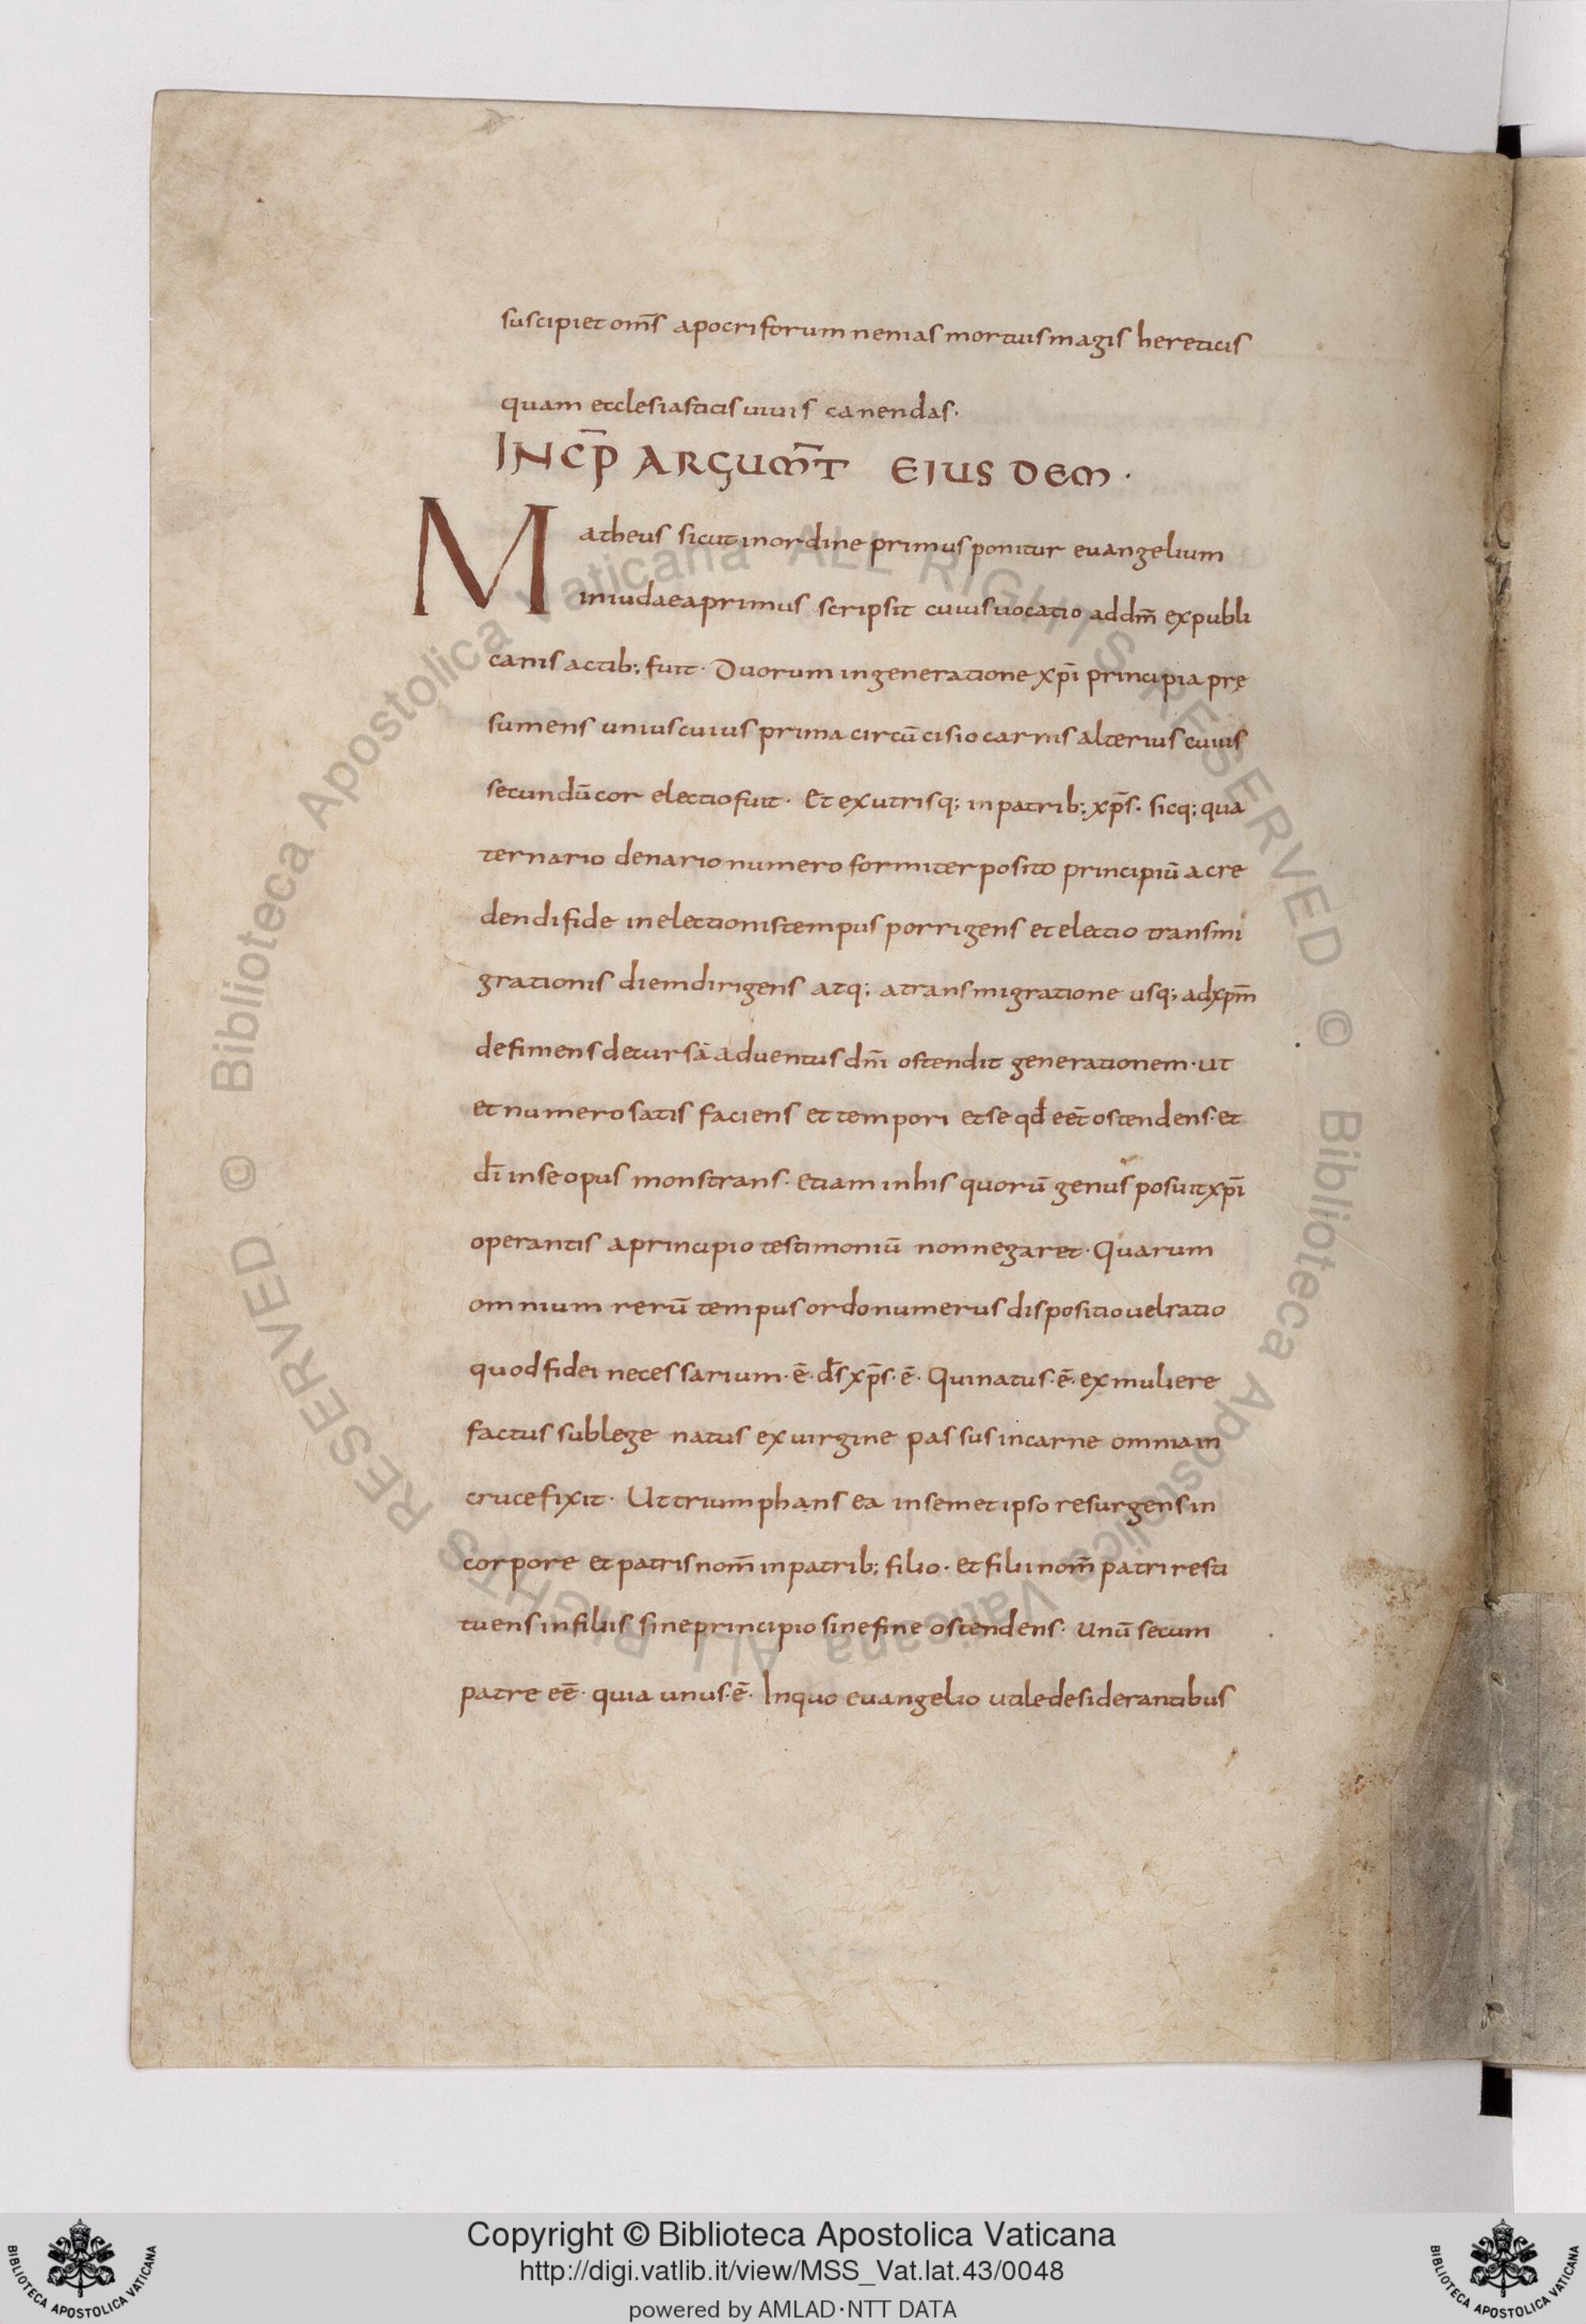 suscipiet om̄s apocriforum nenias mortuis magis hereticis
quam ecclesiasticis uiuis canendas·
INCP̄ ARGUM̄T EIUSDEM·
Matheus sicut in ordine primus ponitur euangelium
in iudaea primus scripsit cuius uocatio ad dm̄ ex publi
canis actib; fuit· Duorum in generatione xp̄i principia prę
sumens unius cuius prima circū cisio carnis alterius cuius
secundū cor electio fuit· Et ex utrisq; in patrib; xp̄s· sicq; qua
ternario denario numero formiter posito principiū a cre
dendi fide in electionis tempus porrigens et electio transmi
grationis diem dirigens atq; a transmigratione usq; ad xpm̄
definiens decursā aduentus dn̄i ostendit generationem· ut
et numero satis faciens et tempori et se qd̄ eēt ostendens· et
dī in se opus monstrans· etiam in his quorū genus posuit xp̄i
operantis a principio testimoniū non negaret· Quarum
omnium rerū tempus ordo numerus dispositio uel ratio
quod fidei necessarium· ē· d̄s xp̄s· ē· Qui natus· ē· ex muliere
factus sub lege natus ex uirgine passus in carne omnia in
cruce fixit· Ut triumphans ea in semet ipso resurgens in
corpore et patris nom̄ in patrib; filio· et filii nom̄ patri resti
tuens in filiis sine principio sine fine ostendens· unū se cum
patre eē· quia unus· ē· In quo euangelio utile desiderantibus
© Biblioteca Apostolica Vaticana ALL RIGHTS RESERVED
© Biblioteca Apostolica Vaticana ALL RIGHTS RESERVED
Copyright © Biblioteca Apostolica Vaticana
http://digi.vatlib.it/view/MSS_Vat.lat.43/0048
powered by AMLAD·NTT DATA
BIBLIOTECA APOSTOLICA VATICANA
BIBLIOTECA APOSTOLICA VATICANA